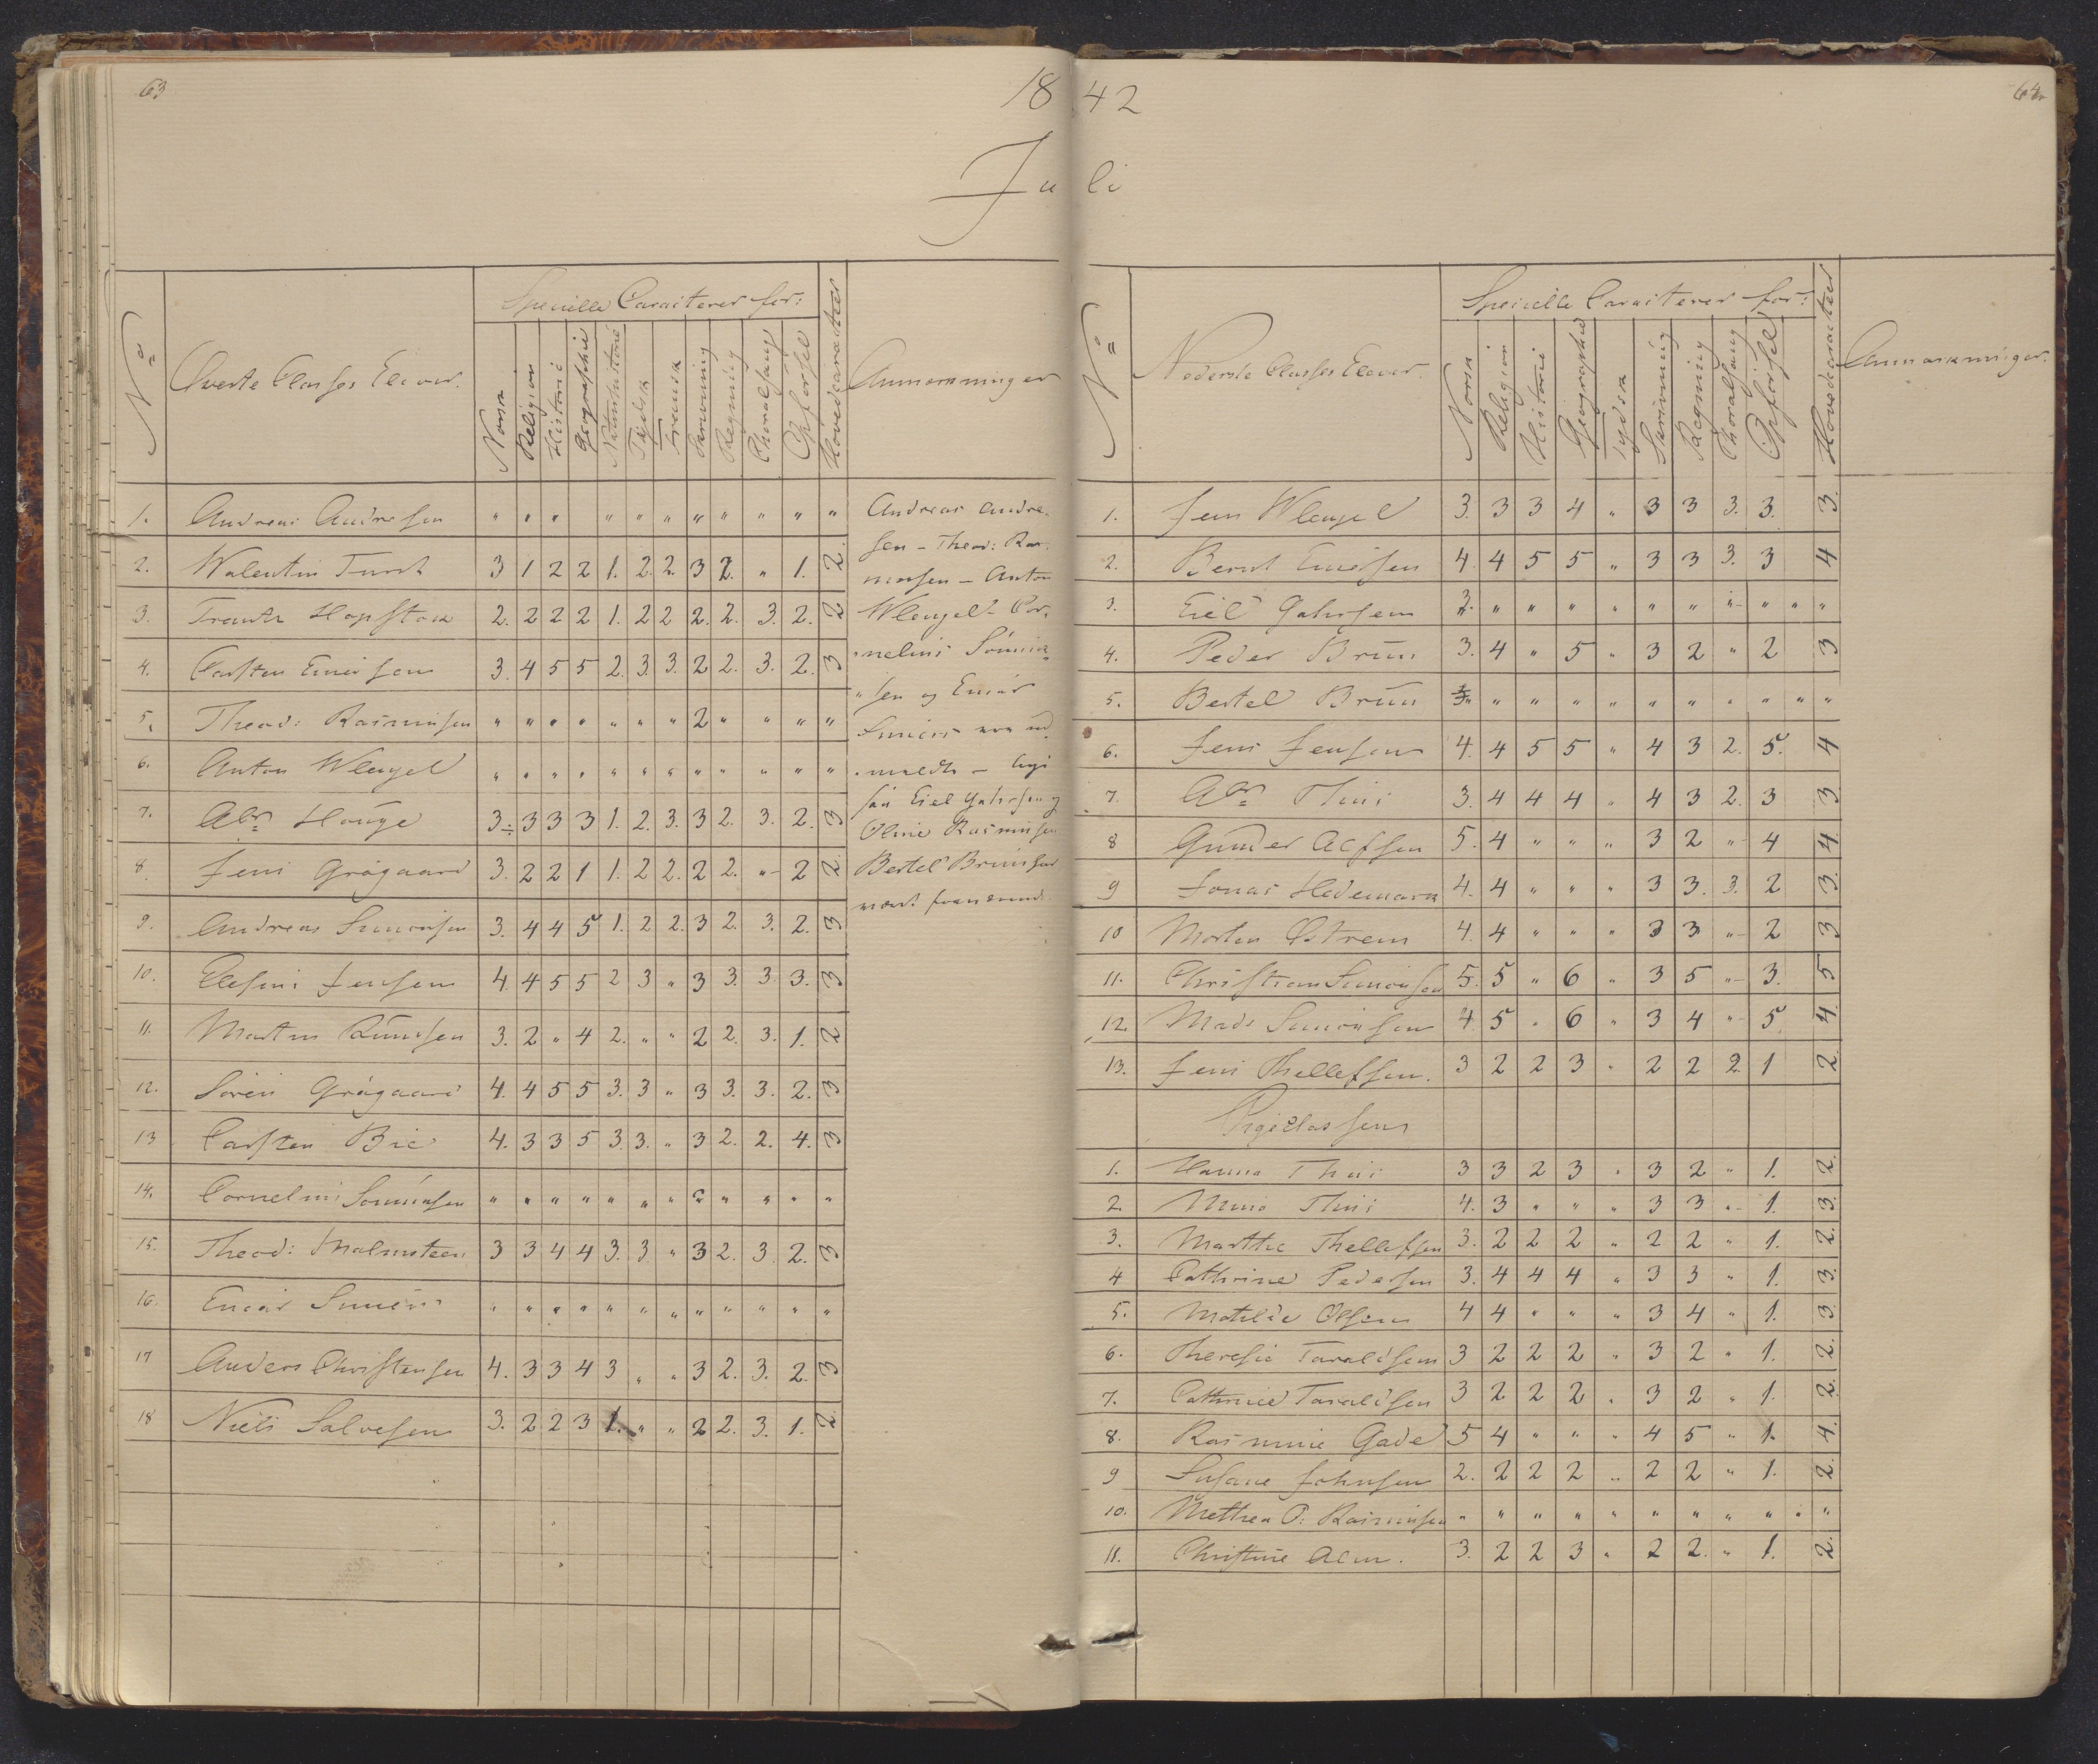 63
18 42
64
Juli
No
Øverste Classes Elever.
Specielle Caracterer for:
Norsk
Religion
Historie
Geographie
Naturhistorie
Tydsk
Fransk
Skrivning
Regning
Choralsang
Opførsel
Hovedcaracter
Anmærkninger
1. Andreas Andresen " " " " " " " " " " "
2. Valentin Fürst 3 1 2 2 1. 2. 2. 3 2. " 1. 2.
3. Frantz Hopstock 2. 2 2 2 1. 2 2 2. 2. 3. 2. 2
4. Carsten Einersen 3. 4 5 5 2. 3. 3. 2 2. 3. 2. 3
5. Theod: Rasmusen " " " " " " " 2 " " " "
6. Anton Wleugel " " " " " " " " " " " "
7. Alx. Houge 3÷ 3 3 3 1. 2. 3. 3 2. 3. 2. 3
8. Jens Grögaard 3. 2 2 1 1. 2 2. 2 2. "- 2 2.
9. Andreas Simonsen 3. 4 4 5 1. 2 2. 3 2. 3. 2. 3
10. Ellefsius Jensen 4. 4 5 5 2 3 " 3 3. 3. 3. 3
11. Martin Knudsen 3. 2 " 4 2. " " 2 2. 3. 1. 2
12. Sören Grögaard 4. 4 5 5 3. 3 " 3 3. 3. 2. 3
13 Carsten Bie 4. 3 3 5 3. 3. " 3 2. 2. 4. 3
14. Cornelius Sönnicksen " " " " " " " " " " " "
15. Theod: Malmsteen 3 3 4 4 3. 3. " 3 2. 3. 2. 3
16. Einar Simers " " " " " " " " " " " "
17 Anders Christensen 4. 3 3 4 3 " " 3 2. 3. 2. 3
18 Niels Salvesen 3. 2 2 3 1. " " 2 2. 3. 1. 2.
Andreas Andre-
sen - Theod: Ras-
musen - Anton
Wleugel - Cor-
"nelius Sönnick-
"sen og Einar
Simers ere ud-
"meldte - Lige
saa Eiel Gahrsen og
Oline Rasmusen
Bertel Bruun har
været fraværende.
No
Nederste Classes Elever.
Specielle Caracterer for:
Norsk
Religion
Historie
Geographie
Tydsk
Skrivning
Regning
Choralsang
Opførsel
Hovedcaracter
Anmærkninger.
1. Jens Wleugel 3. 3 3 4 " 3 3 3. 3. 3.
2. Bernt Einersen 4. 4 5 5 " 3 3 3. 3 4
3. Eiel Gahrsen " " " " " " " " " "
4. Peder Bruun 3. 4 " 5 " 3 2 " 2 3
5. Bertel Bruun " " " " " " " " " "
6. Jens Jensen 4. 4 5 5 " 4 3 2. 5. 4
7. Alx. Thiis 3. 4 4 4 " 4 3 2. 3 3
8 Gunder Alfsen 5. 4 " " " 3 2 "- 4 4.
9 Jonas Hedemark 4. 4 " " " 3 3. 3. 2 3.
10 Morten Østrem 4. 4 " " " 3 3 "- 2 3
11. Christian Simonsen 5. 5 " 6 " 3 5 "- 3. 5
12. Mads Simonsen 4. 5 " 6 " 3 4 "- 5 4.
13. Jens Thellefsen. 3 2 2 3 " 2 2 2. 1 2.
Pigeclassen
1. Hanna Thiis 3 3 2 3 " 3 2 " 1. 2.
2. Minna Thiis 4. 3 " " " 3 3 "- 1. 3.
3. Marthe Thellefsen 3. 2 2 2 " 2 2 " 1. 2.
4 Cathrine Pedersen 3. 4 4 4 " 3 3 " 1. 3.
5. Matilde Olsen 4 4 " " " 3 4 " 1. 3.
6. Theresie Taraldsen 3 2 2 2 " 3 2 " 1. 2.
7. Cathrine Taraldsen 3 2 2 2 " 3 2 " 1. 2.
8. Rasmine Gade 5 4 " " " 4 5 " 1. 4.
9 Susane Johnsen 2. 2 2 2 " 2 2 " 1. 2.
10. Methea O: Rasmusen " " " " " " " " " "
11. Christine Alm. 3. 2 2 3 " 2 2. " 1. 2.